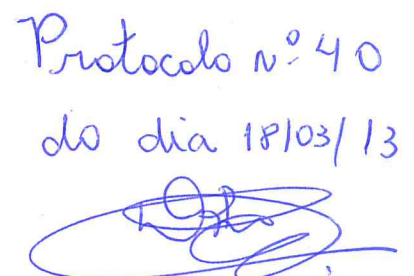 Protocolo nº 40
do dia 18/03/13